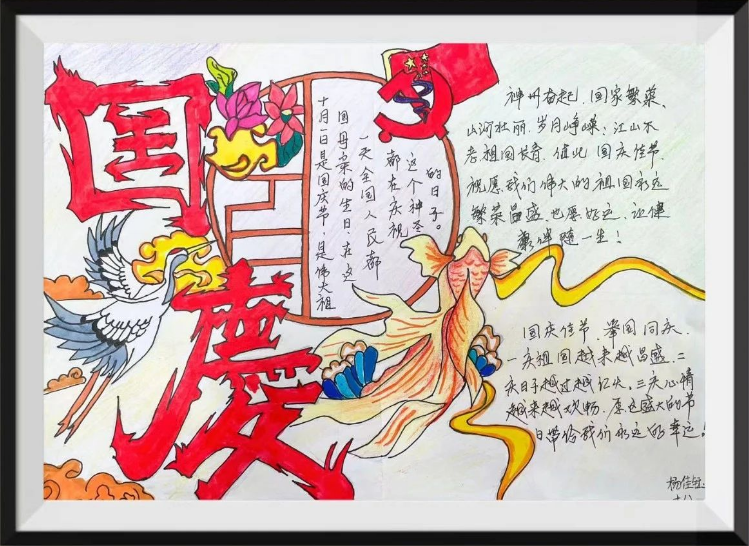 国庆
十月一日是国庆节，是伟大祖
国母亲的生日，在这
一天全国人民都
都在庆祝
这个神圣
的日子。
神州奋起，国家繁荣、
山河壮丽，岁月峥嵘；江山不
老祖国长春，值此国庆佳节，
祝愿我们伟大的祖国永远
繁荣昌盛，也愿好运、还健
康伴随一生！
国庆佳节，举国同庆，
一庆祖国越来越昌盛，二
庆日子越过越红火，三庆心情
越来越欢畅，愿这盛大的节
日带给我们永远的幸运！
杨佳